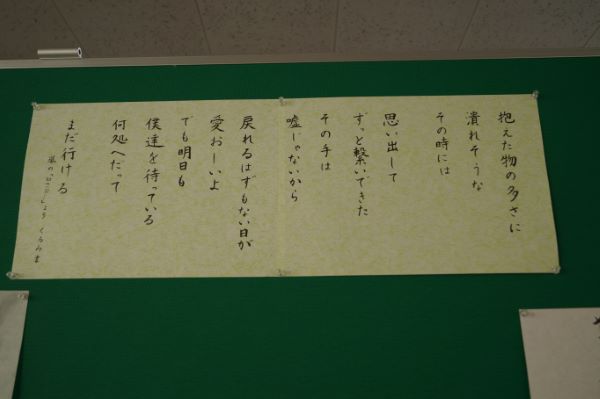 抱えた物の多さに
潰れそうな
その時には
思い出して
ずっと繋いできた
その手は
嘘じゃないから
戻れるはずもない日が
愛おしいよ
でも明日も
僕達を待っている
何処へだって
まだ行ける
くらみま